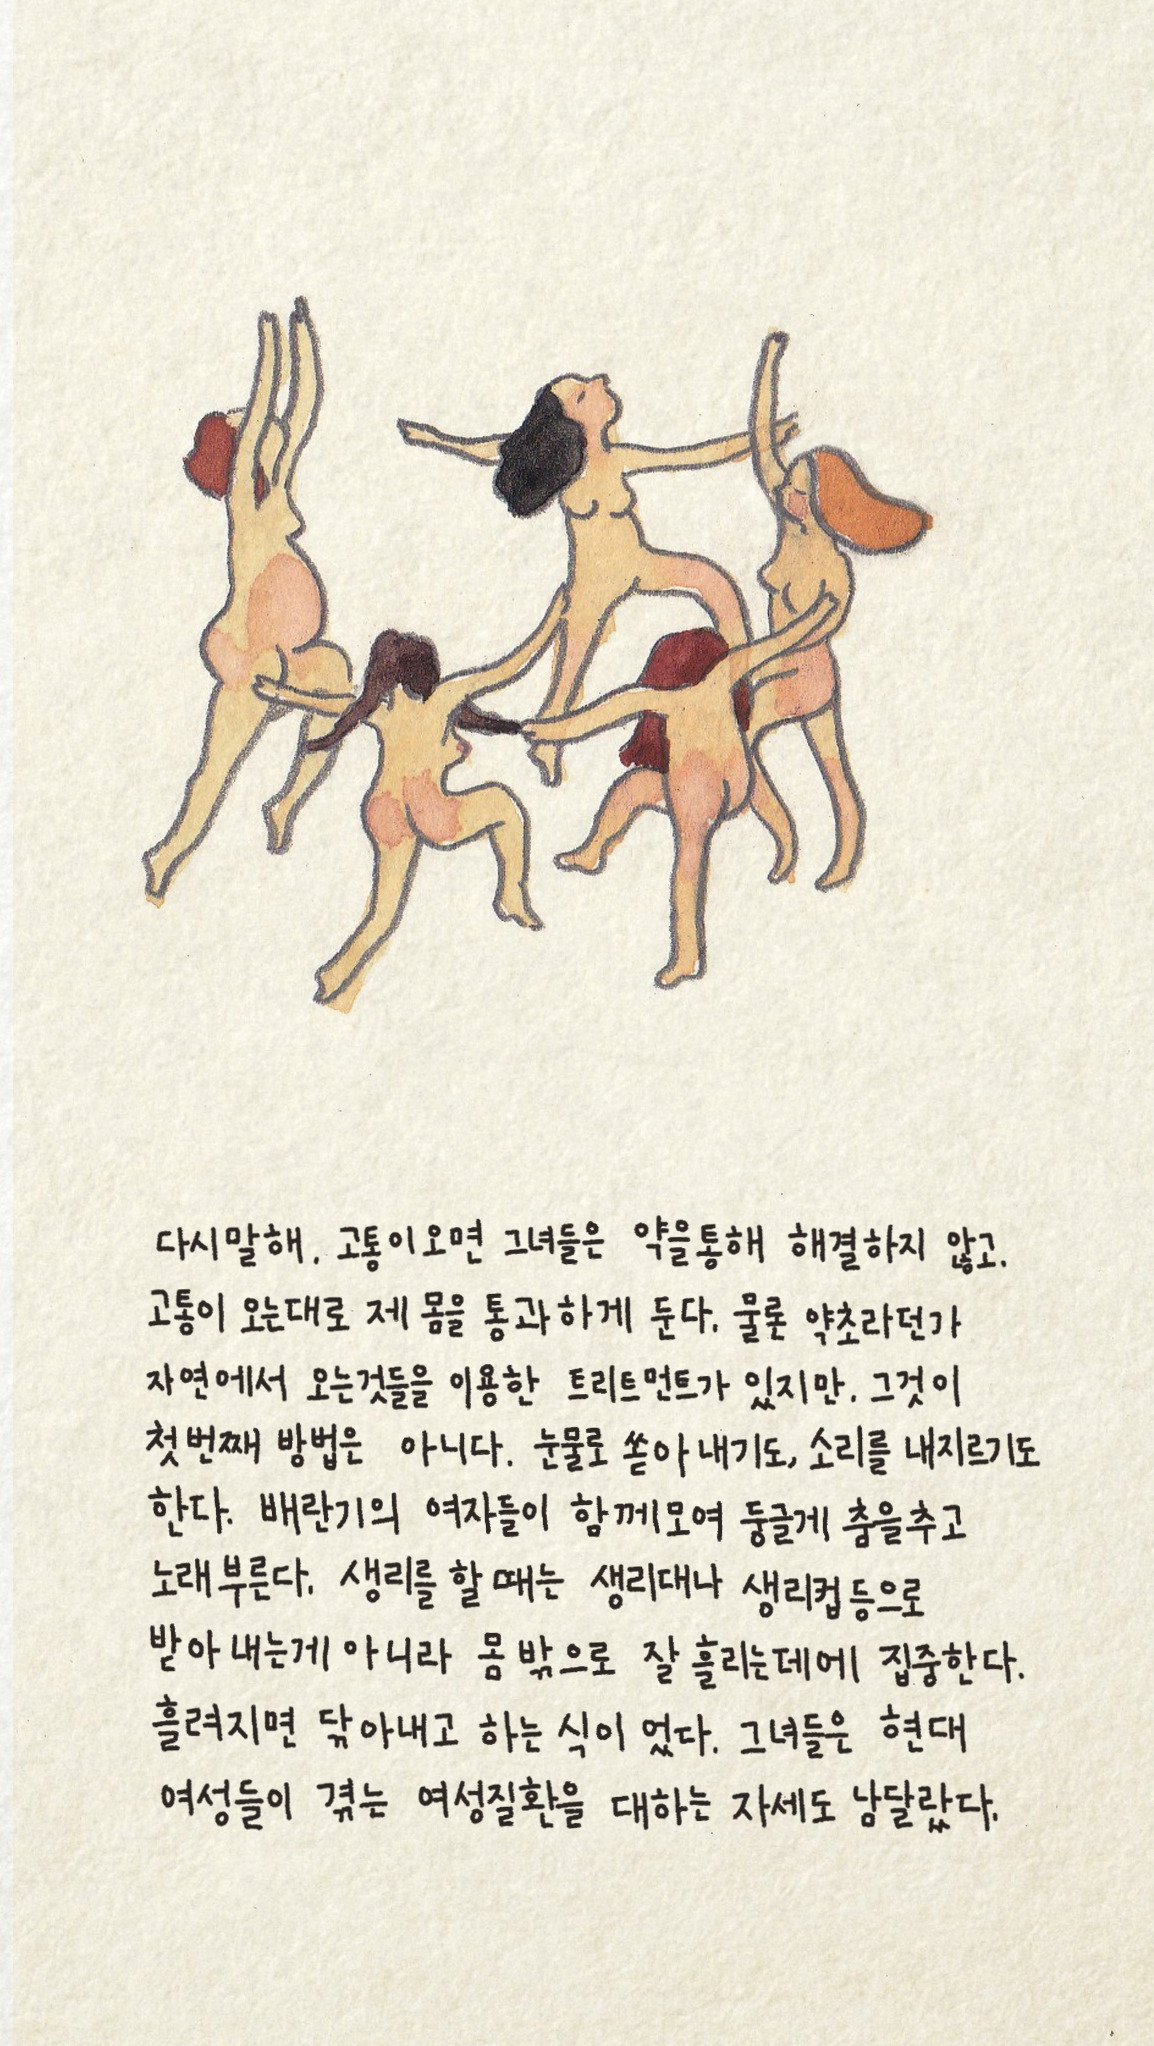 다시말해, 고통이오면 그녀들은 약을통해 해결하지 않고.
고통이 오는대로 제 몸을 통과하게 둔다. 물론 약초라던가
자연에서 오는것들을 이용한 트리트먼트가 있지만. 그것이
첫번째 방법은 아니다. 눈물로 쏟아 내기도, 소리를 내지르기도
한다. 배란기의 여자들이 함께모여 둥글게 춤을추고
노래부른다. 생리를 할 때는 생리대나 생리컵등으로
받아 내는게 아니라 몸 밖으로 잘 흘리는데에 집중한다.
흘려지면 닦아내고 하는 식이 었다. 그녀들은 현대
여성들이 겪는 여성질환을 대하는 자세도 남달랐다.